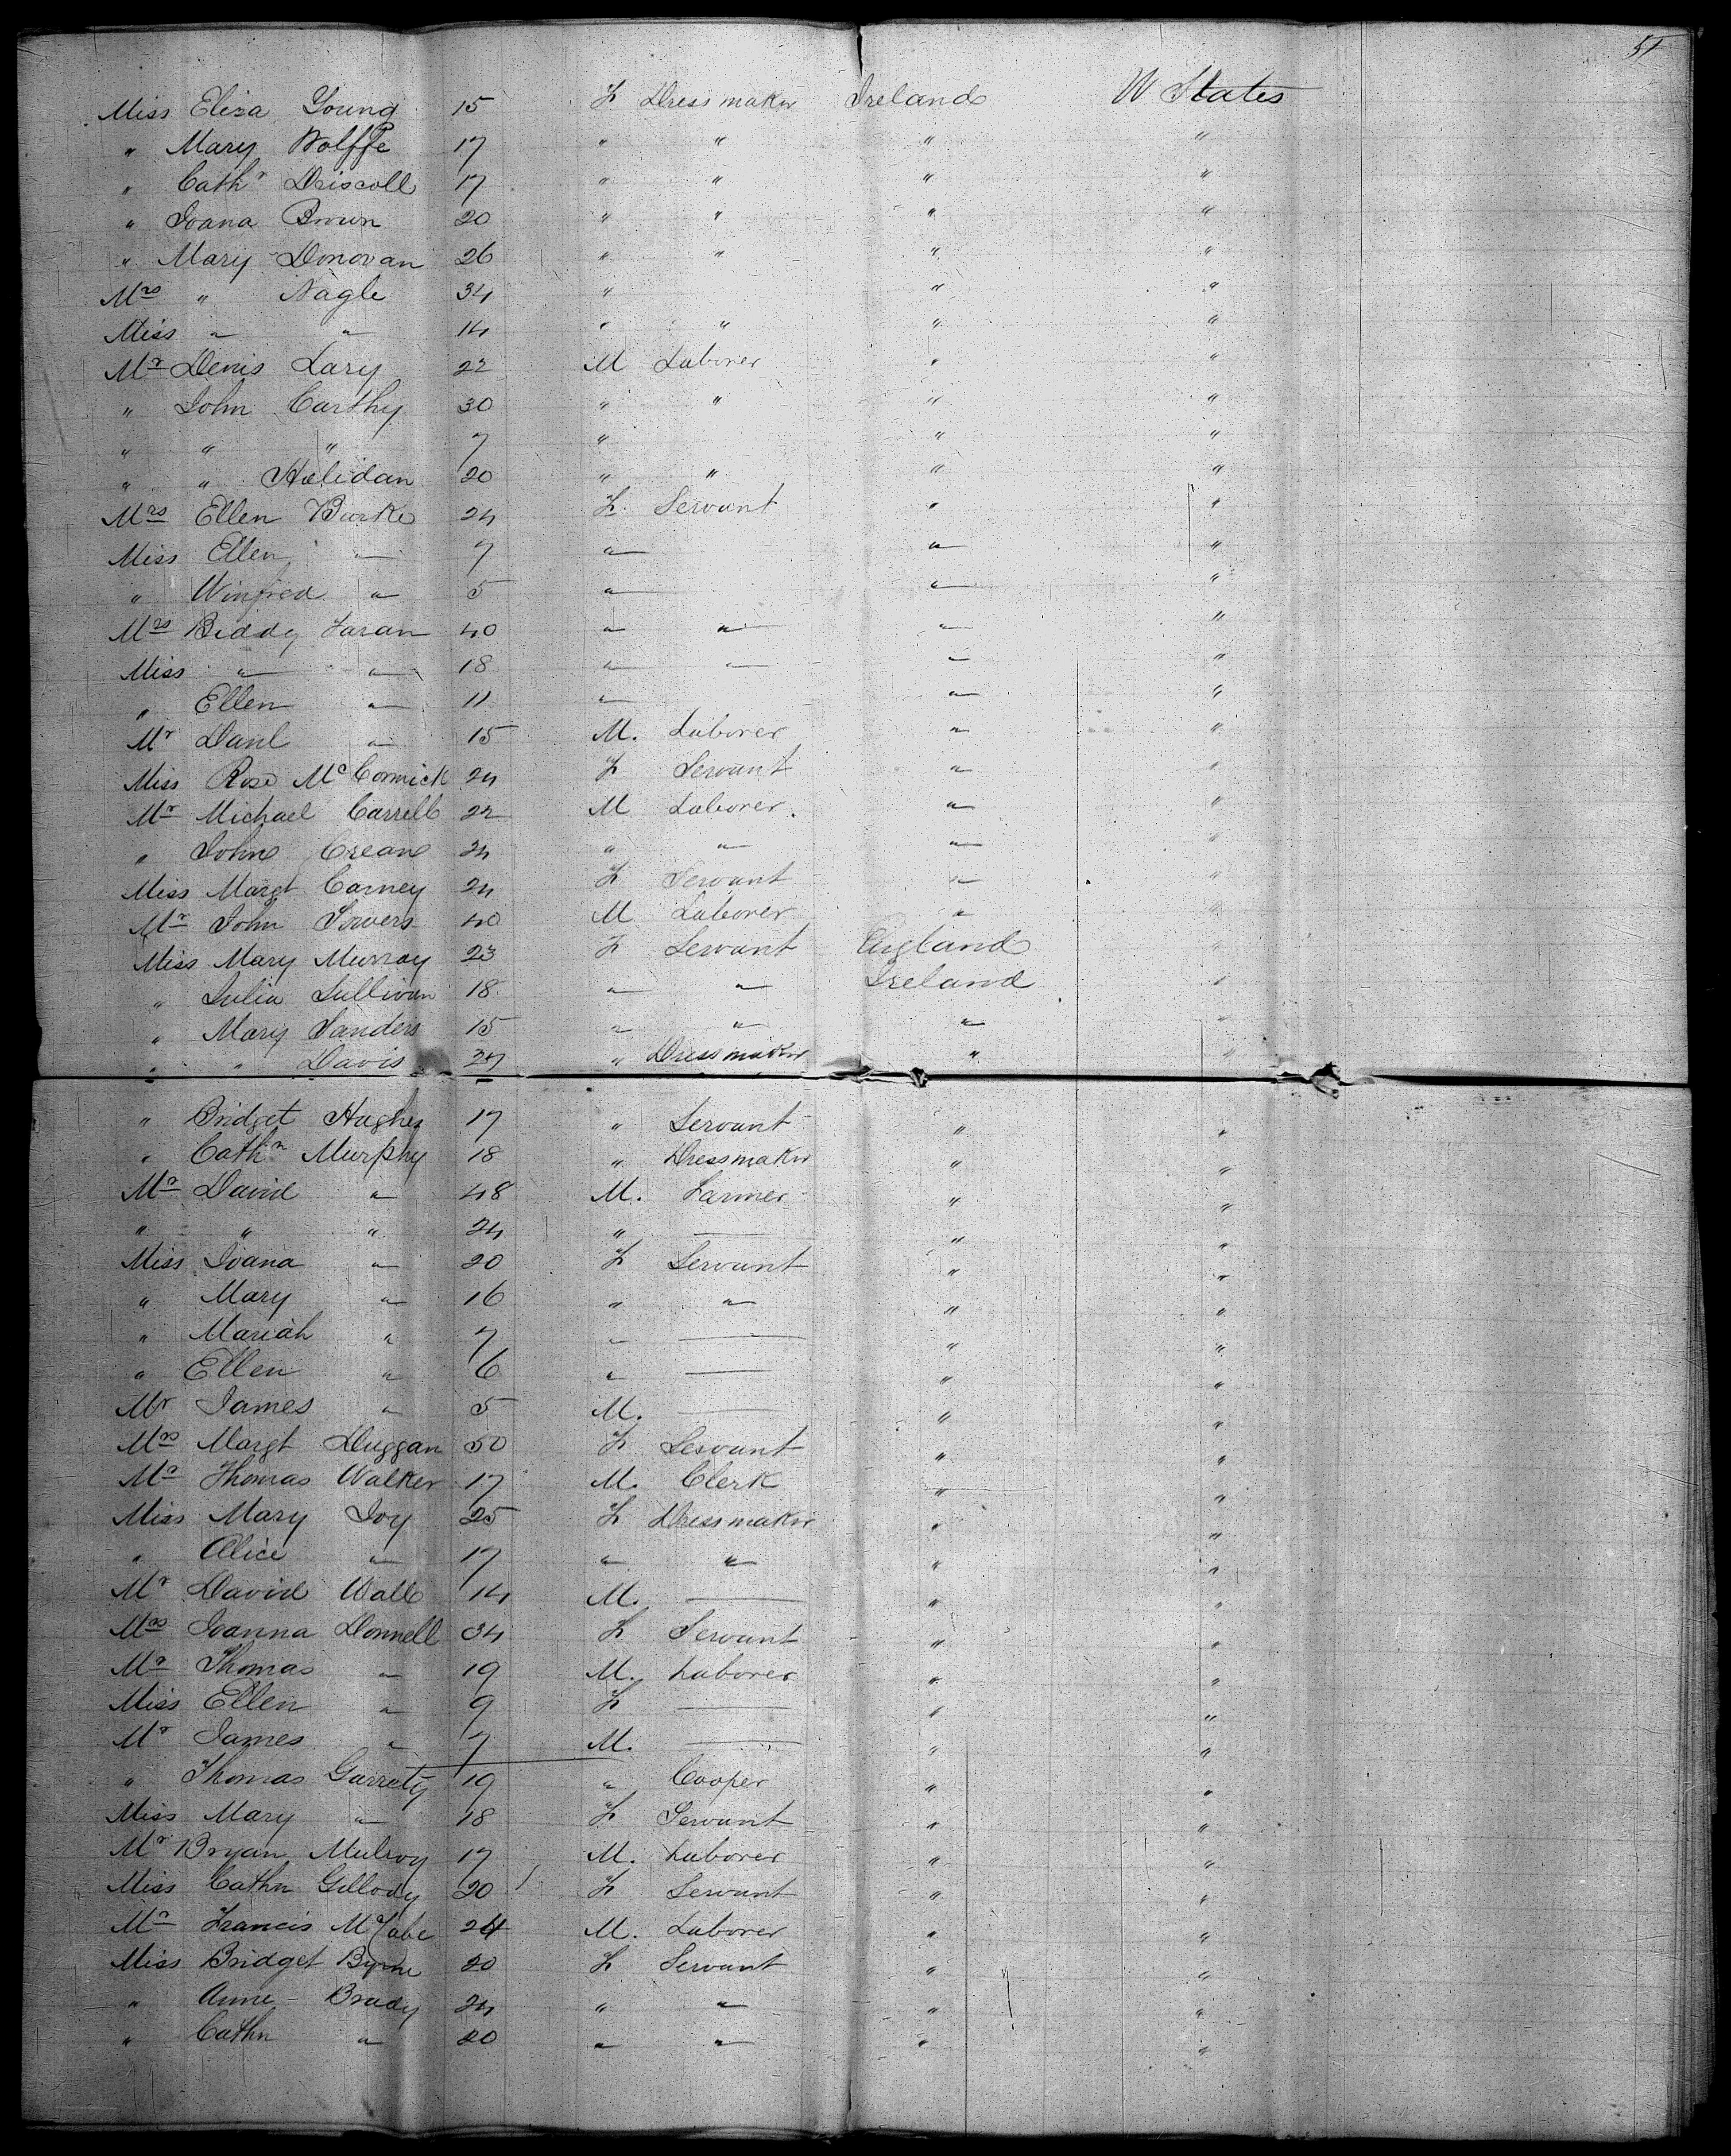 51
Miss Eliza Young 15 F Dress maker Ireland U States
" Mary Wolffe 17 " " " "
" Cathr Driscoll 17 " " " "
" Joana Brown 20 " " " "
" Mary Donovan 26 " " " "
Mrs " Nagle 34 " " "
Miss " " 14 " " " "
Mr Denis Lary 22 M Laborer " "
" John Carthy 30 " " " "
" " " 7 " " "
" " Halidan 20 " " " "
Mrs Ellen Burke 24 F. Servant " "
Miss Ellen " 7 " " "
" Winfred " 5 " " "
Mrs Biddy Faran 40 " " " "
Miss " " 18 " " " "
" Ellen " 11 " " "
Mr Danl " 15 M. Laborer " "
Miss Rose McCormick 24 F Servant " "
Mr Michael Carrell 22 M Laborer. " "
" John Crean 24 " " " "
Miss Margt Carney 24 F Servant " "
Mr John Sowers 40 M Laborer " "
Miss Mary Murray 23 F Servant England "
" Julia Sullivan 18 " " Ireland "
" Mary Sanders 15 " " " "
" " Davis " Dressmaker " "
" Bridget Hughes 17 " Servant " "
" Cathn Murphy 18 " Dressmaker " "
Mr David " 48 M. Farmer " "
" " " 24 " — " "
Miss Joana " 20 F Servant " "
" Mary " 16 " " " "
" Mariah " 7 " — " "
" Ellen " 6 " — " "
Mr James " 5 M. — " "
Mrs Margt Duggan 50 F Servant " "
Mr Thomas Walker 17 M. Clerk " "
Miss Mary Joy 25 F Dressmaker " "
" Alice " 17 " " " "
Mr David Wall 14 M. — " "
Mrs Joanna Donnell 34 F Servant " "
Mr Thomas " 19 M. Laborer " "
Miss Ellen " 9 F — " "
Mr James " 7 M. — " "
" Thomas Garraty 19 " Cooper " "
Miss Mary " 18 F Servant " "
Mr Bryan Mulroy 17 M. Laborer " "
Miss Cathn Gillody 20 F Servant " "
Mr Francis McCabe 24 M. Laborer " "
Miss Bridget Byrne 20 F Servant " "
" Anne Brady 24 " " " "
" Cathn " 20 " " " "